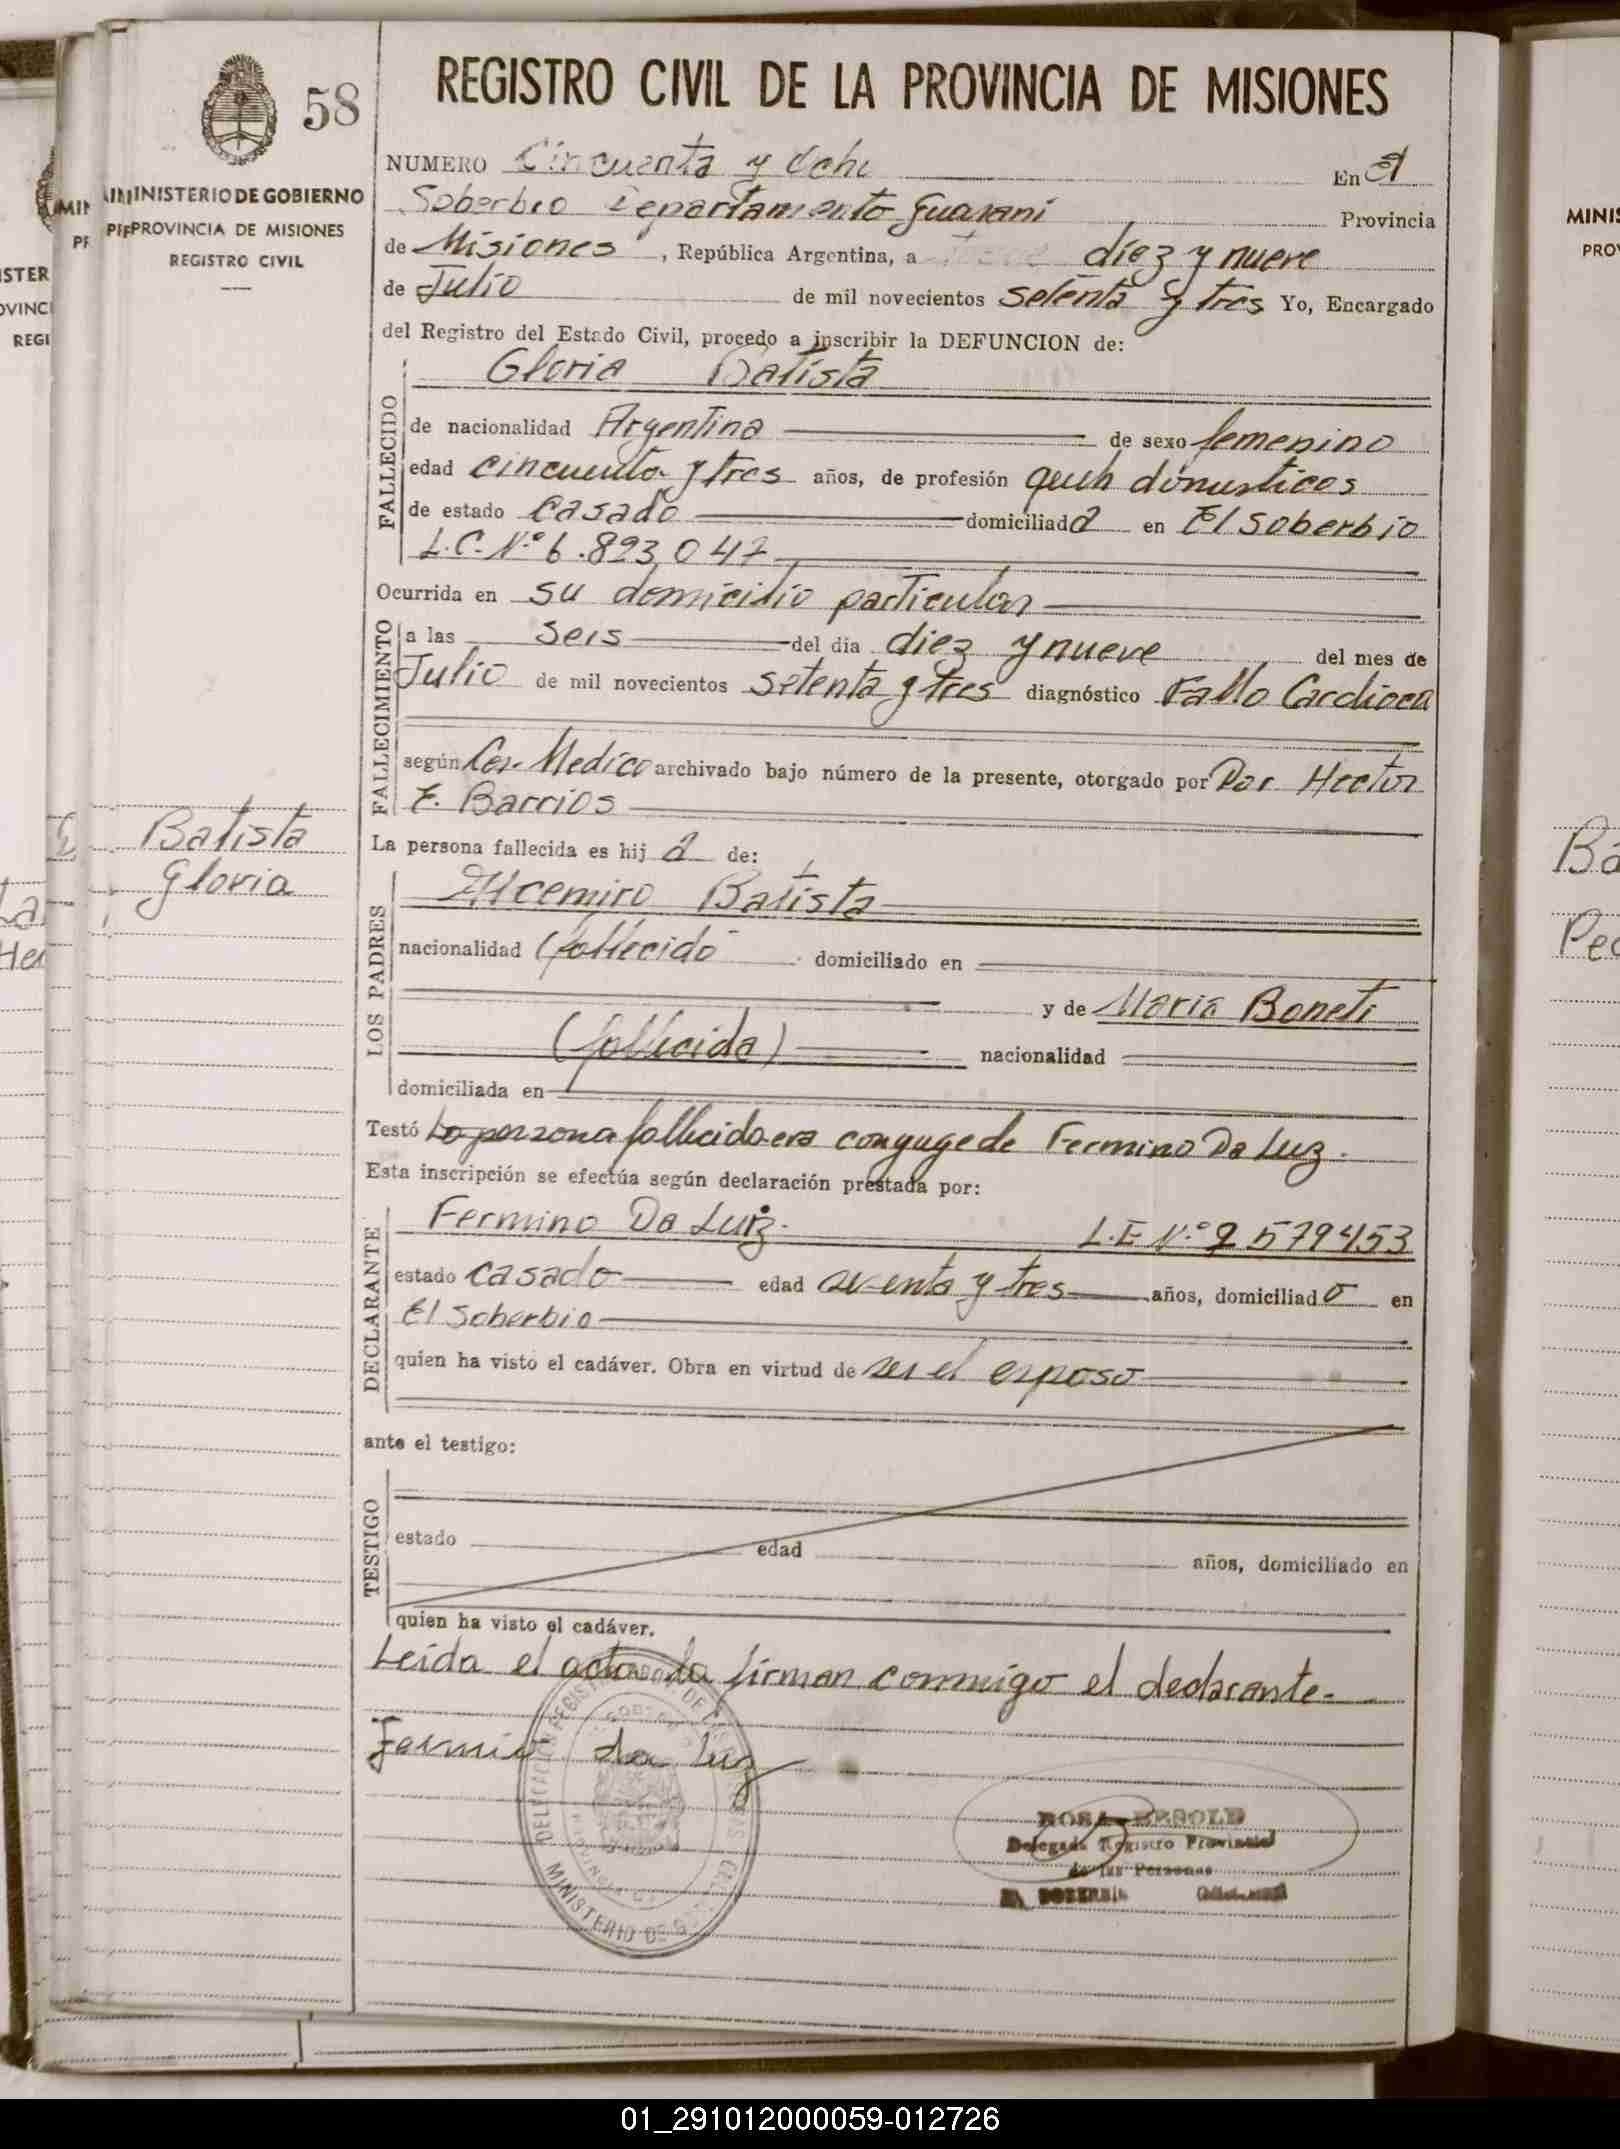 58
MINISTERIO DE GOBIERNO
PROVINCIA DE MISIONES
REGISTRO CIVIL
Batista
Gloria
REGISTRO CIVIL DE LA PROVINCIA DE MISIONES
NUMERO Cincuenta y Ocho En El
Soberbio Departamento Guarani Provincia
de Misiones, República Argentina, a diez y nueve
de Julio de mil novecientos setenta y tres Yo, Encargado
del Registro del Estado Civil, procedo a inscribir la DEFUNCION de:
Gloria Batista
FALLECIDO
de nacionalidad Argentina de sexo femenino
edad cincuenta y tres años, de profesión domesticos
de estado Casado domiciliada en El Soberbio
L.C. Nº 6.823,047
Ocurrida en su domicilio particular
FALLECIMIENTO
a las seis del dia diez y nueve del mes de
Julio de mil novecientos setenta y tres diagnóstico Fallo Cardiaca
según Cer. Medico archivado bajo número de la presente, otorgado por Dor Hector
E. Barrios
La persona fallecida es hija de:
LOS PADRES
Alcemiro Batista
nacionalidad (fallecido domiciliado en
y de Maria Boneti
(fallecida) nacionalidad
domiciliada en
Testó La persona fallecida era conyuge de Fermino Da Luz.
Esta inscripción se efectúa según declaración prestada por:
DECLARANTE
Fermino Da Luiz. L.E Nº 7 579453
estado casado edad setenta y tres años, domiciliado en
El Soberbio
quien ha visto el cadáver. Obra en virtud de ser el esposo
ante el testigo:
TESTIGO
estado edad años, domiciliado en
quien ha visto el cadáver.
Leida el acta la firman conmigo el declarante.
Fermino da Luz
MINISTERIO DE
ROSA BESOLD
Delegada Registro Provincial
de las Personas
EL SOBERBIO
MINIS
PRO
Ba
Ped
01_291012000059-012726